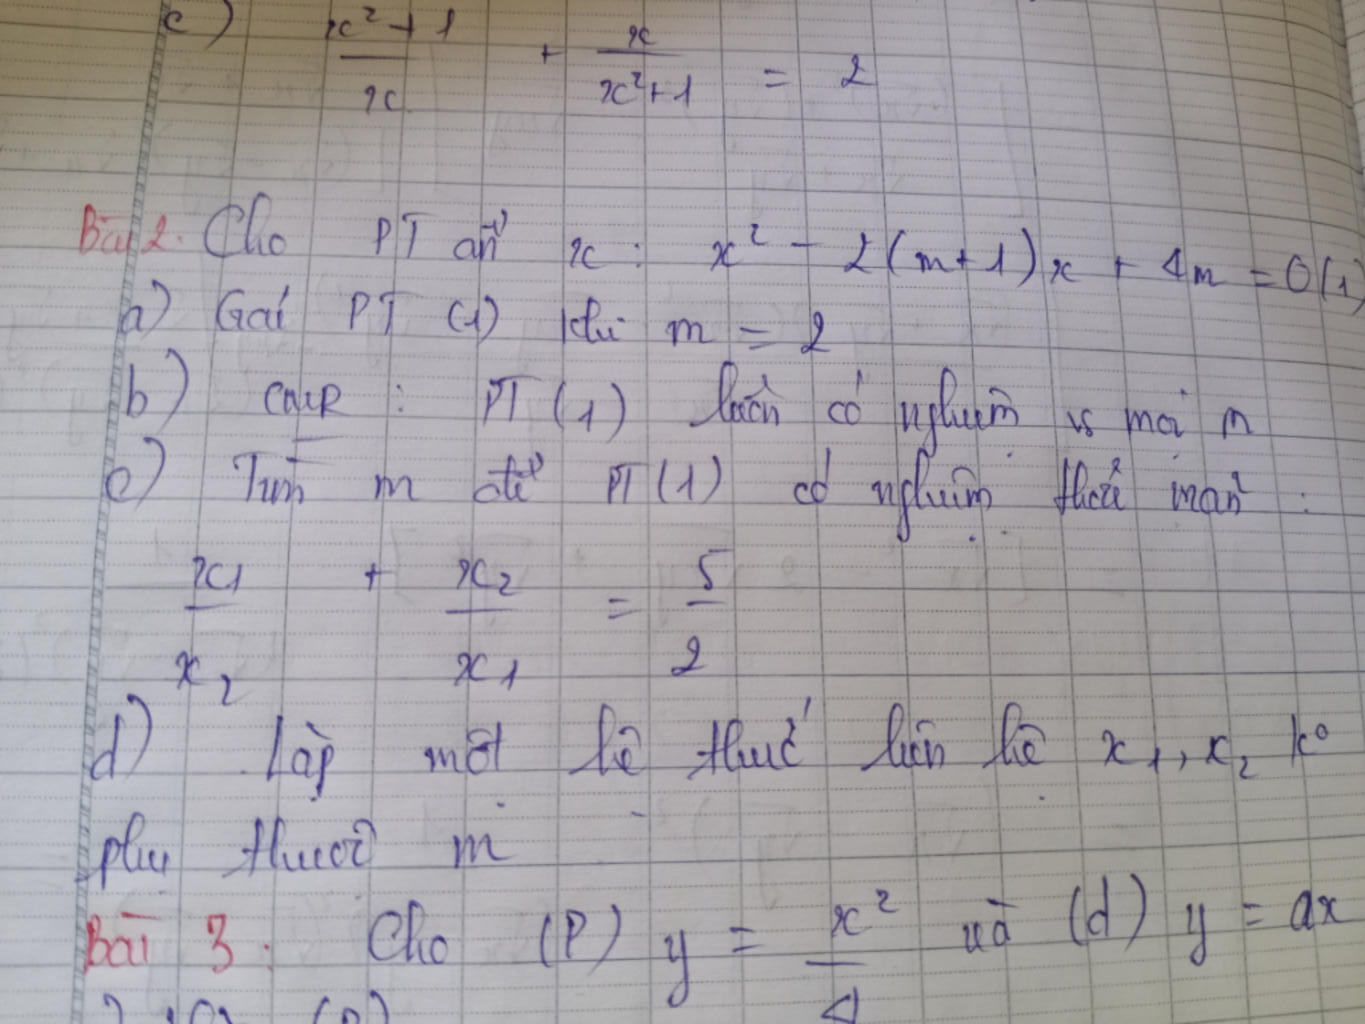 c) x²+1/x + x/x²+1 = 2
Bài 2. Cho PT ẩn x: x² - 2(m+1)x + 4m = 0 (1)
a) Gải PT (1) khi m = 2
b) CMR: PT (1) luôn có nghiệm vs mọi m
c) Tìm m để PT (1) có nghiệm thoả mãn:
x₁/x₂ + x₂/x₁ = 5/2
d) Lập một hệ thức liên hệ x₁, x₂ k°
phụ thuộc m
Bài 3: Cho (P) y = x²/4 và (d) y = ax